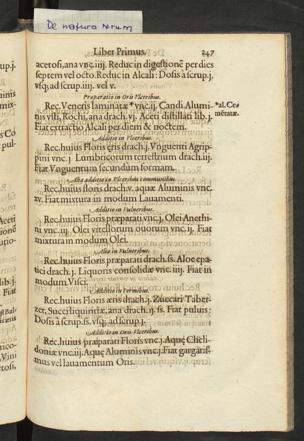 De natura rerum
Liber Primus. 247
acetosi, ana vnc.iiij. Reduc in digestionē per dies
septem vel octo. Reduc in Alcali: Dosis à scrup.j.
vsq; ad scrup.iiij. vel v.
Præparatio in Oris Vlceribus.
Rec. Veneris laminatæ * vnc.ij. Candi Alumi-
nis vsti, Rochi, ana drach. vj. Aceti distillati lib. j.
Fiat extractio Alcali per diem & noctem.
* al. Ce-
mētatæ.
Additio in Vlceribus.
Rec. huius Floris æris drach. j. Vnguenti Agrip-
pini vnc. j Lumbricorum terrestrium drach. iij.
Fiat Vnguentum secundùm formam.
Alia additio in Vlceribus communibus.
Rec. huius floris drach. v. aquæ Aluminis vnc.
xv. Fiat mixtura in modum Lauamenti.
Additio in Vulneribus.
Rec. huius Floris præparati vnc. j. Olei Anethi-
ni vnc. iij. Olei vitellorum ouorum vnc. ij. Fiat
mixtura in modum Olei.
Alia in Vulneribus.
Rec. huius Floris præparati drach. ſs. Aloe epa-
tici drach. j. Liquoris consolidæ vnc. iiij. Fiat in
modum Visci.
Additio in Vermibus.
Rec. huius Floris æris drach. j. Zuccari Taber-
zet, Succi liquiritiæ, ana drach. ij. ſs. Fiat puluis:
Dosis à scrup. ſs. vsq; ad scrup. j.
Additio in Oris Vlceribus.
Rec. huius præparati Floris vnc. j. Aquę Cheli-
doniæ vnc. iij. Aquę Aluminis vnc. j. Fiat gargaris-
mus vel lauamentum Oris.